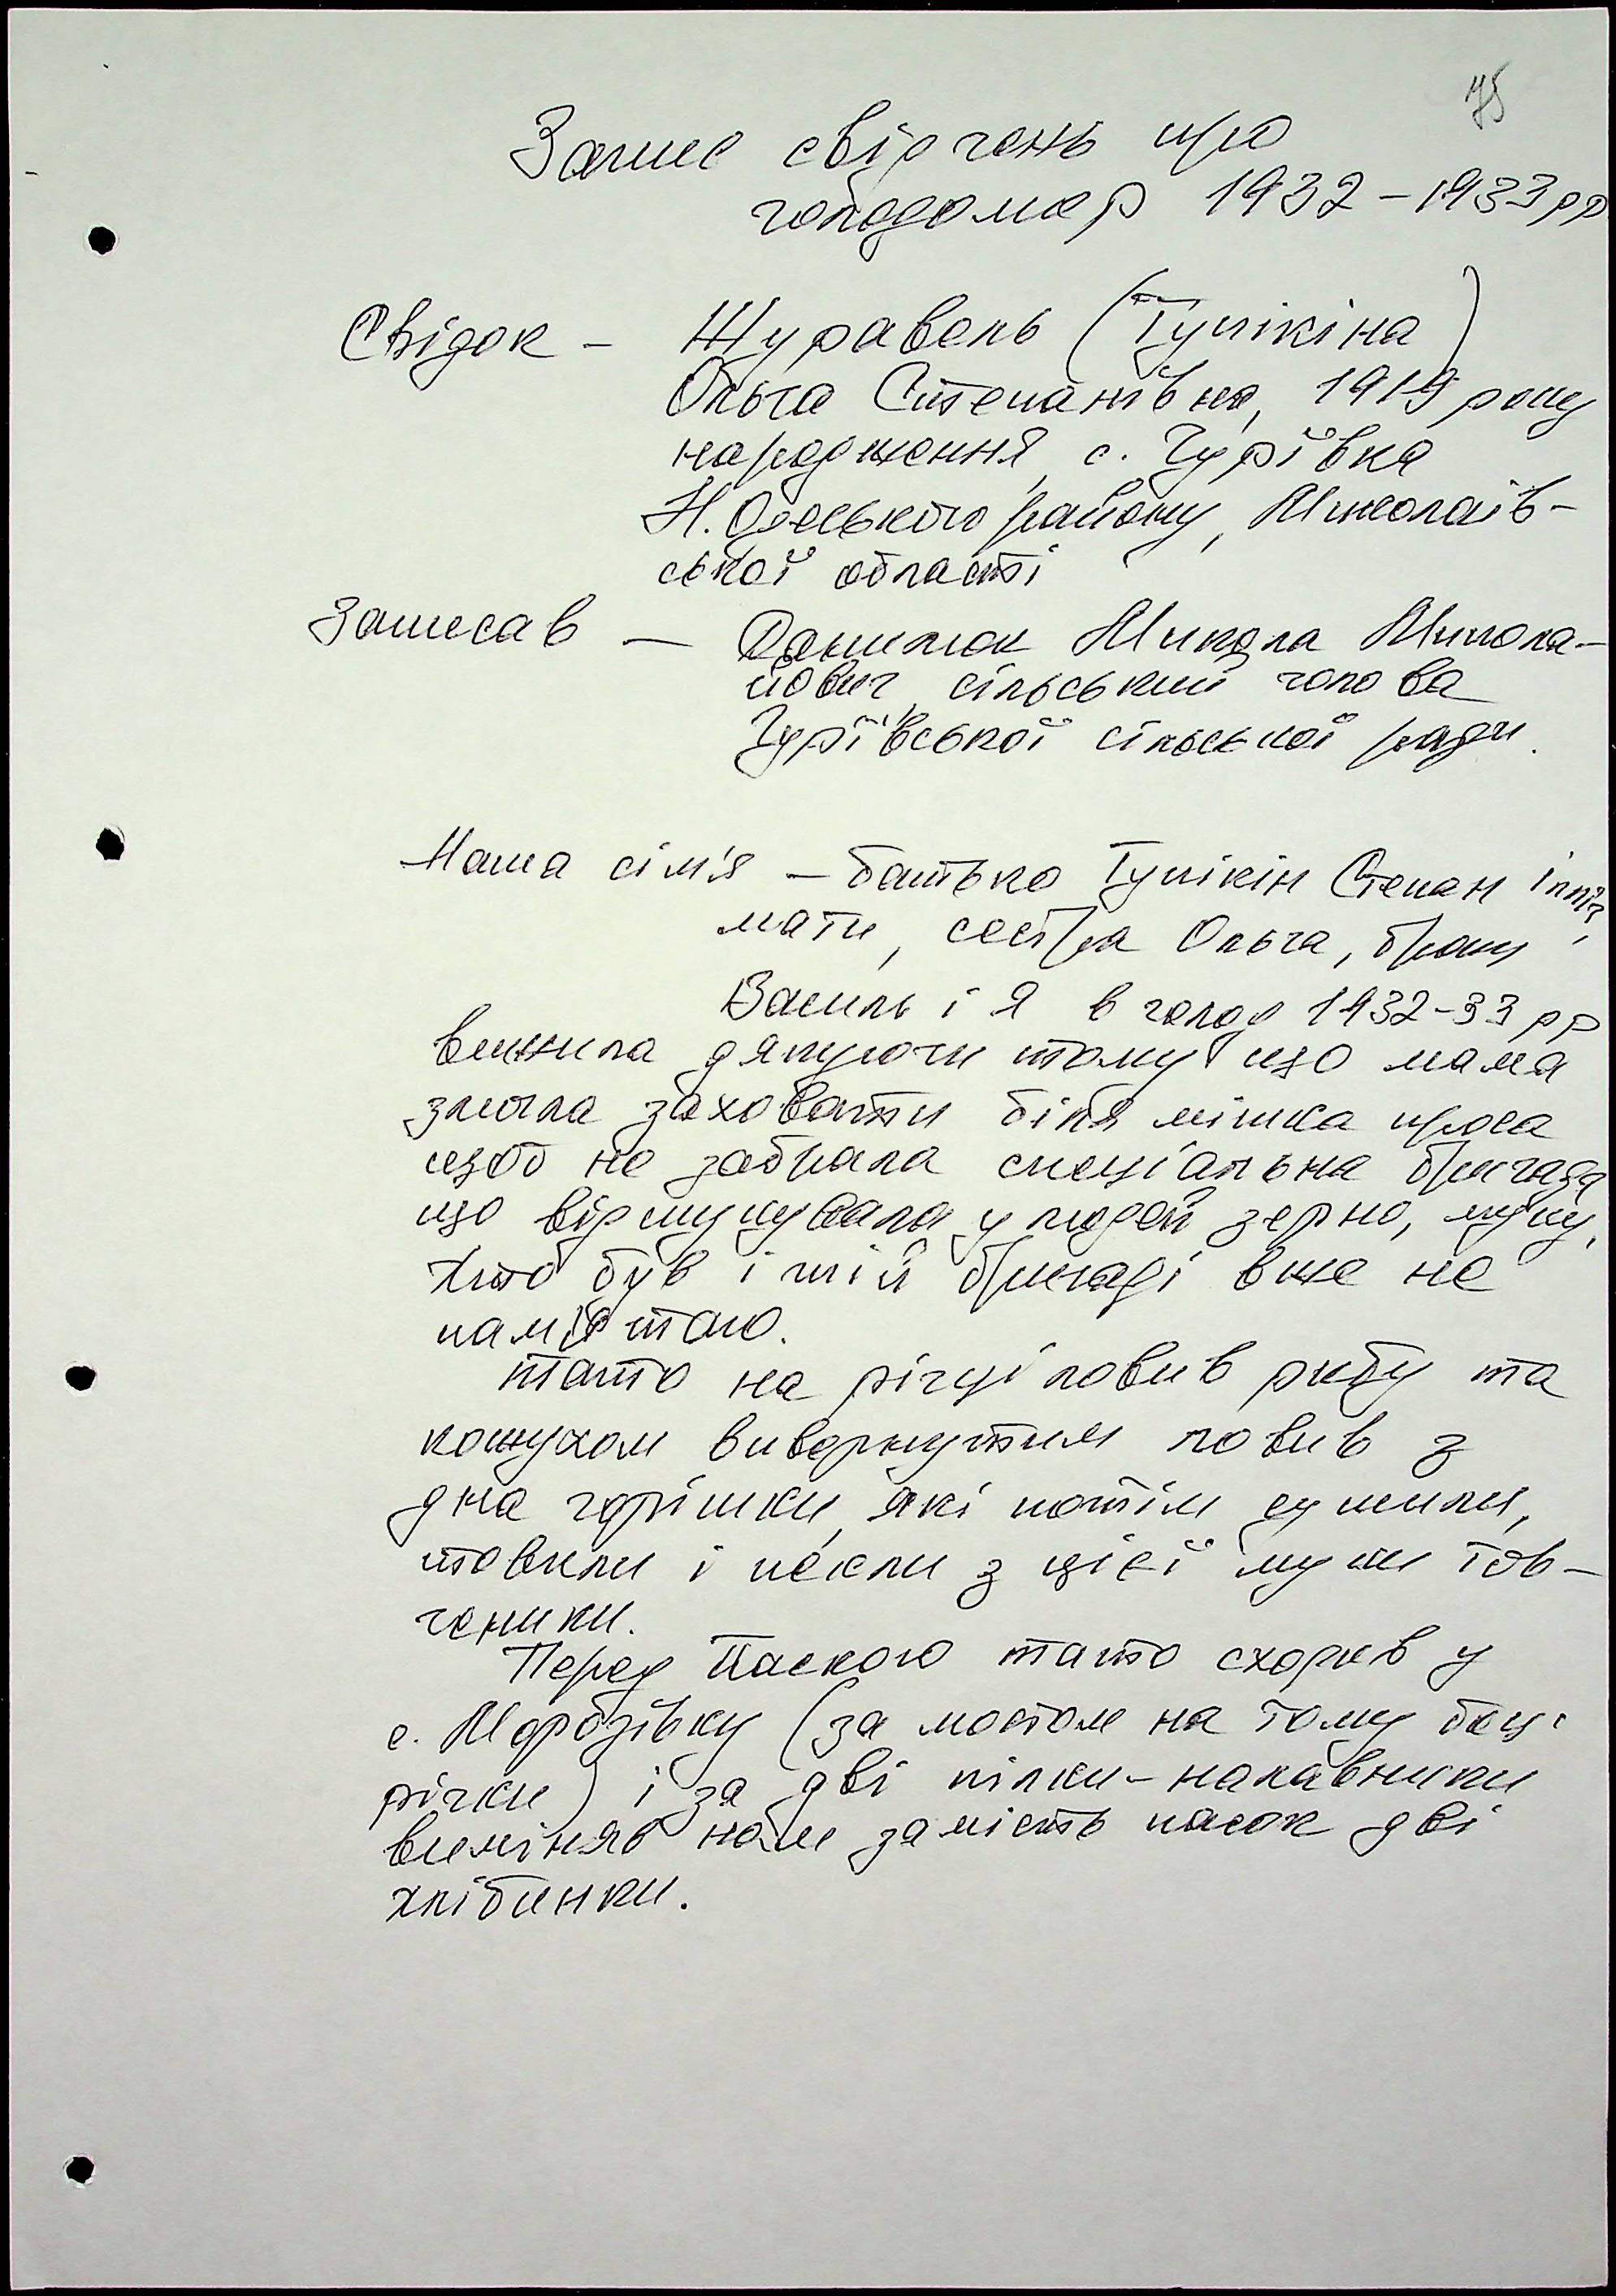 75
Запис свідчень про
голодомор 1932-1933 рр
Свідок - Журавель (Тупікіна)
Ольга Степанівна, 1919 року
народження, с. Гур'ївка
Н. Одеського району, Миколаїв-
ської області
Записав - Данилюк Микола Микола-
йович, сільський голова
Гур'ївської сільської ради.
Наша сім'я - батько Тупікін Степан
мати, сестра Ольга, брати
Василь і я в голод 1932-33 рр
вижила дякуючи тому що мама
змогла заховати біля мішка проса
щоб не забрала спеціальна бригада
що відшукувала у людей зерно, муку.
Хто був і тій бригаді вже не
пам'ятаю.
Тато на річці ловив рибу та
кожухом вивернутим ловив з
дна горішки, які потім сушили,
товкли і пекли з цієї муки тов-
ченики.
Перед Паскою тато сходив у
с. (за мостом на тому боці
річки) і за дві
виміняв нам замість пасок дві
хлібинки.